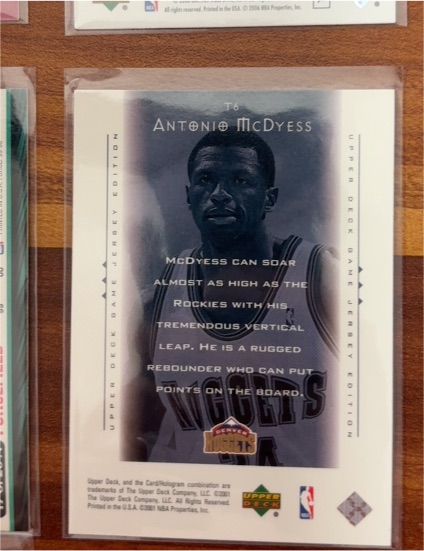 All rights reserved. Printed in the USA. © 2006 NBA Properties, Inc.
T6
ANTONIO MCDYESS
UPPER DECK GAME JERSEY EDITION
MCDYESS CAN SOAR
ALMOST AS HIGH AS THE
ROCKIES WITH HIS
TREMENDOUS VERTICAL
LEAP. HE IS A RUGGED
REBOUNDER WHO CAN PUT
POINTS ON THE BOARD.
UPPER DECK GAME JERSEY EDITION
NUGGETS
24
DENVER
NUGGETS
Upper Deck, and the Card/Hologram combination are
trademarks of The Upper Deck Company, LLC. ©2001
The Upper Deck Company, LLC. All Rights Reserved.
Printed in the U.S.A. ©2001 NBA Properties, Inc.
UPPER
DECK
NBA